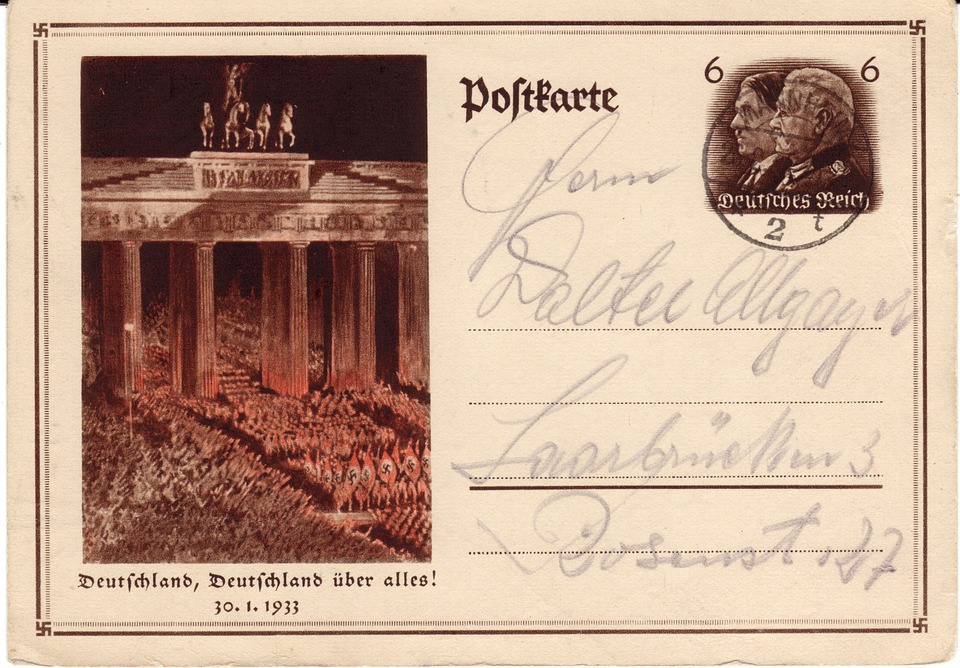 Postkarte
6 6
Deutsches Reich
2 t
Herrn
Walter Allgayer
Saarbrücken 3
Rosenst. 27
Deutschland, Deutschland über alles!
30. 1. 1933